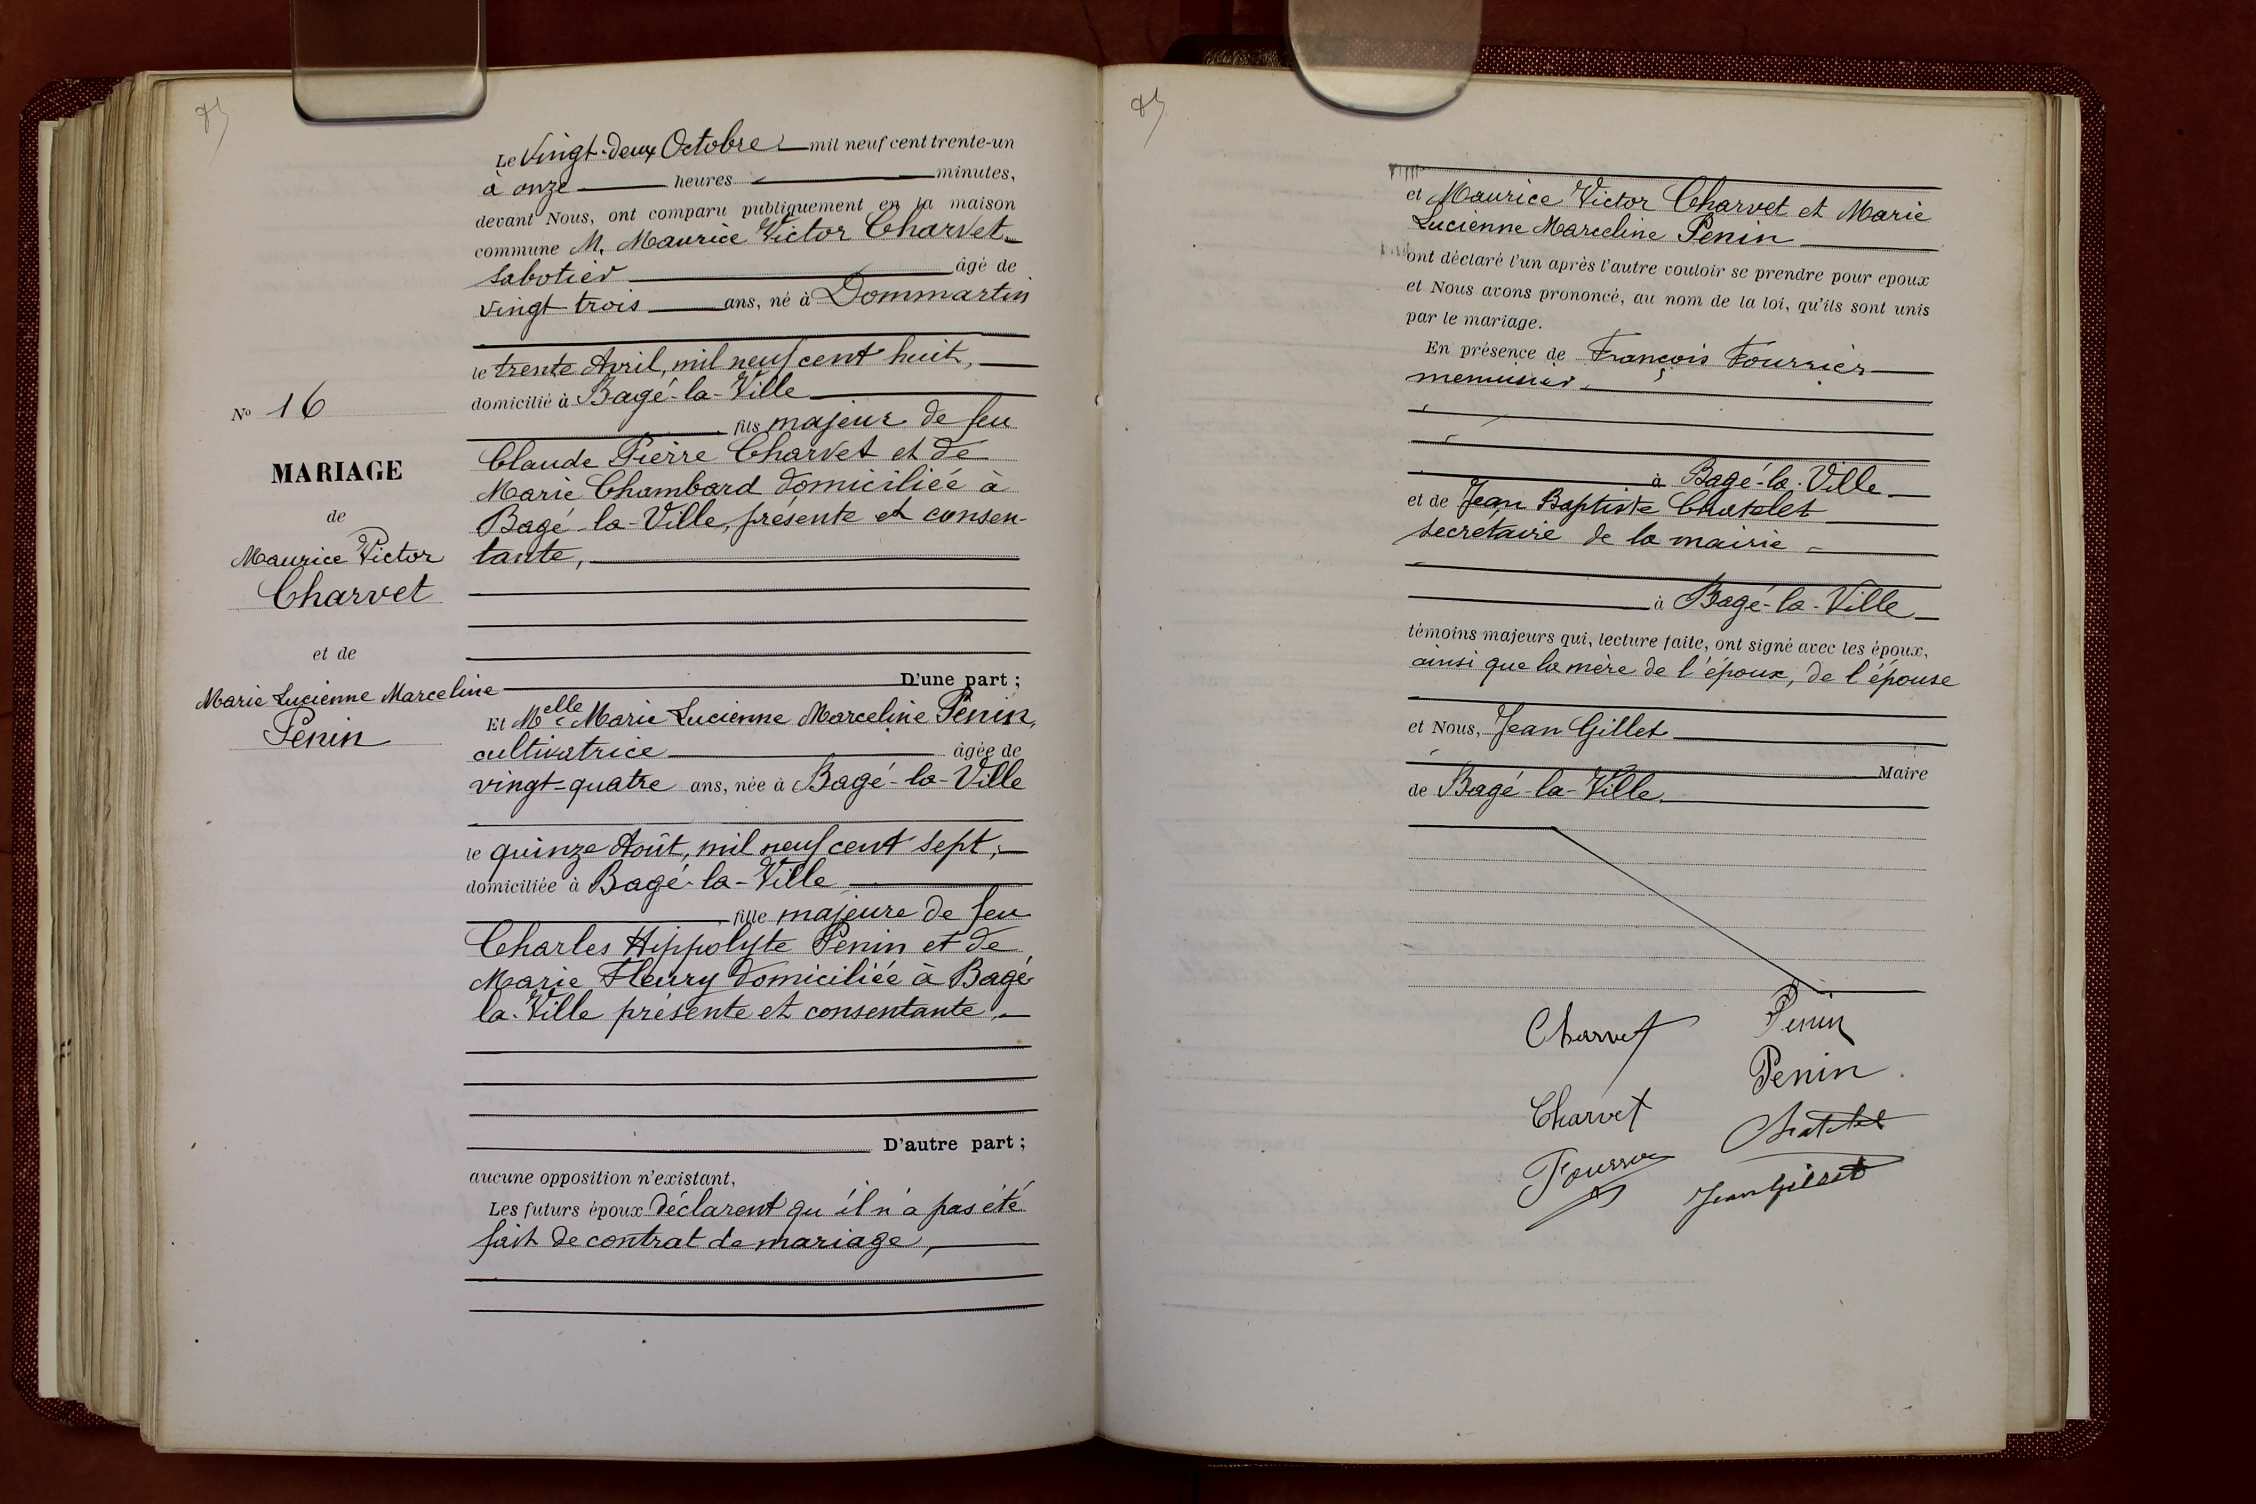 Le Vingt-deux Octobre mil neuf cent trente-un
à onze heures minutes,
devant Nous, ont comparu publiquement en la maison
commune M. Maurice Victor Charvet
sabotier âgé de
vingt trois ans, né à Dommartin
le trente Avril, mil neuf cent huit,
domicilié à Bagé-la-Ville
fils majeur de feu
Claude Pierre Charvet et de
Marie Chambard domiciliée à
Bagé-la-Ville, présente et consen-
tante,
D'une part ;
Et Melle Marie Lucienne Marceline Penin,
cultivatrice âgée de
vingt-quatre ans, née à Bagé-la-Ville
le quinze Août, mil neuf cent sept,
domiciliée à Bagé-la-Ville
fille majeure de feu
Charles Hippolyte Penin et de
Marie Fleury domiciliée à Bagé
la-Ville présente et consentante,
D'autre part ;
aucune opposition n'existant,
Les futurs époux déclarent qu'il n'a pas été
fait de contrat de mariage,
No 16
MARIAGE
de
Maurice Victor
Charvet
et de
Marie Lucienne Marceline
Penin
et Maurice Victor Charvet et Marie
Lucienne Marceline Penin
ont déclaré l'un après l'autre vouloir se prendre pour epoux
et Nous avons prononcé, au nom de la loi, qu'ils sont unis
par le mariage.
En présence de François Fournier
menuisier
à Bagé-la-Ville
et de Jean Baptiste Chatelet
secretaire de la mairie
à Bagé-la-Ville
témoins majeurs qui, lecture faite, ont signé avec les époux,
ainsi que la mère de l'époux, de l'épouse
et Nous, Jean Gillet
Maire
de Bagé-la-Ville
Charvet Penin
Penin
Charvet
Chatelet
Fournier
Jean Gillet